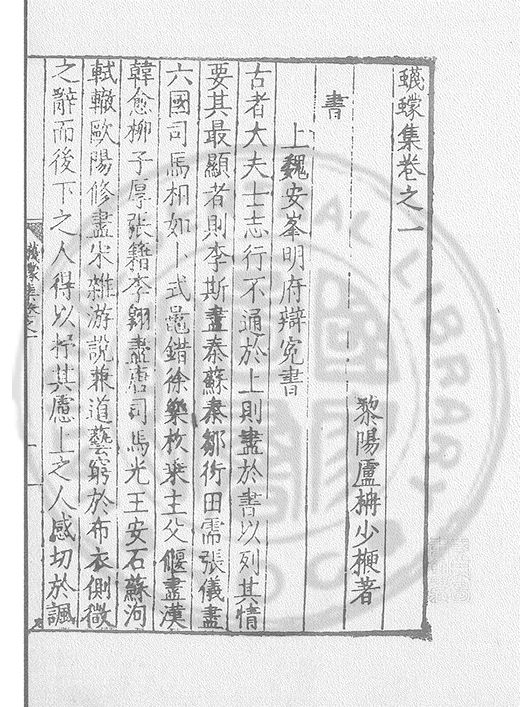 蠛蠓集卷之一
黎陽盧柟少楩著
書
上魏安峯明府辯冤書
古者大夫士志行不通於上則盡於書以列其情
要其最顯者則李斯盡秦蘇秦鄒衍田需張儀盡
六國司馬相如卜式鼂錯徐樂枚乘主父偃盡漢
韓愈柳子厚張籍李翱盡唐司馬光王安石蘇洵
軾轍歐陽修盡宋雜游說兼道藝窮於布衣側微
之辭而後下之人得以抒其慮上之人感切於諷
蠛蠓集卷之一